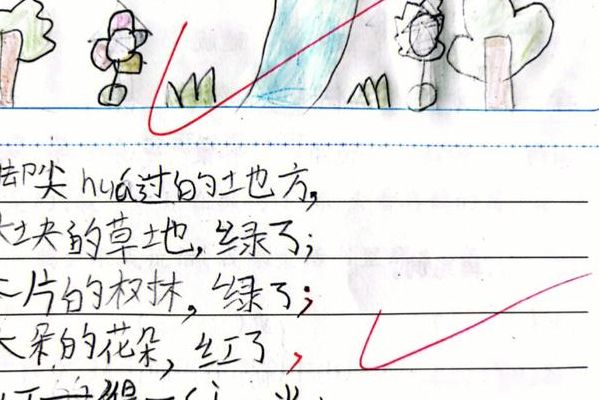 脚尖huá过的土地方，
块的草地，绿了；
片的树林，绿了；
朵的花朵，红了，